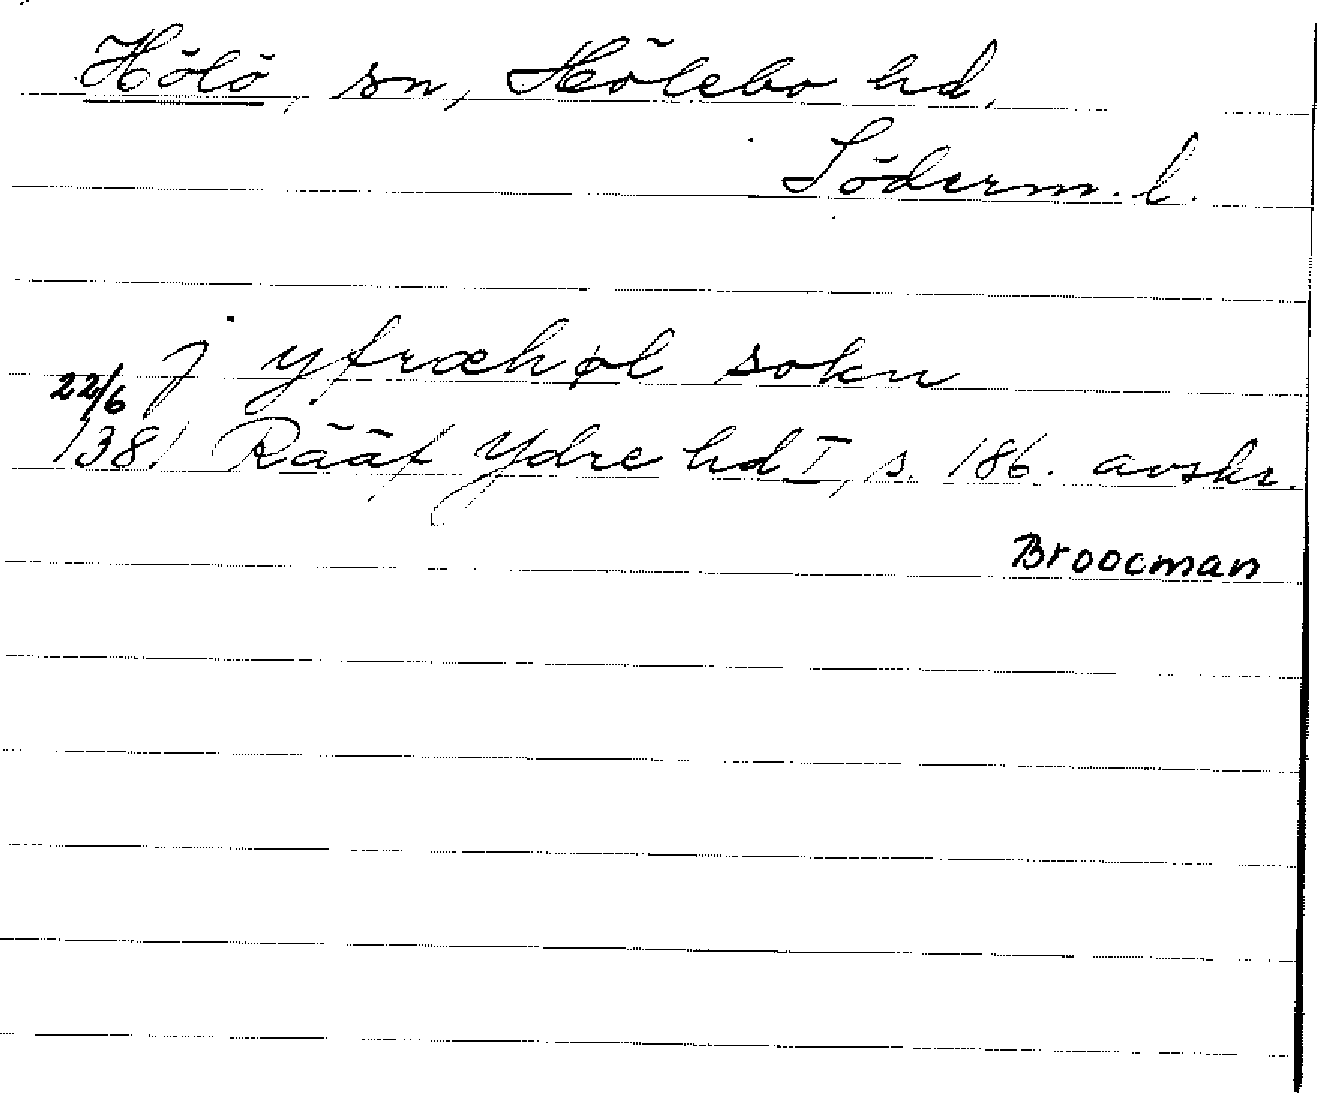 Hölö, sn, Hölebo hd,
Söderm. l.
j yfræhøl sokn
22/6
1381 Rääf Ydre hd I, s. 186. avskr.
Broocman